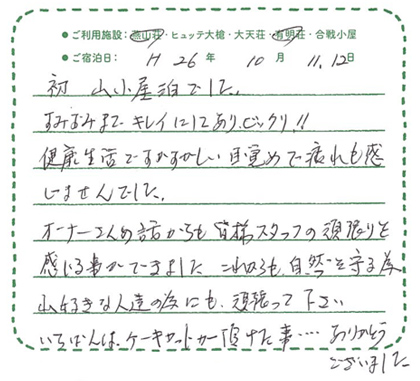 ●ご利用施設：燕山荘・ヒュッテ大槍・大天荘・有明荘・合戦小屋
●ご宿泊日： H 26 年 10 月 11.12日
初 山小屋泊でした。
すみずみまでキレイにしてあり、ビックリ!!
健康生活ですがすがしい目覚めで疲れも感
じませんでした。
オーナーさんの話からも皆様スタッフの頑張りを
感じる事ができました これからも、自然を守る為
山好きな人達の為にも、頑張って下さい
いちばんは、ケーキセットが頂けた事…… ありがとう
ございました